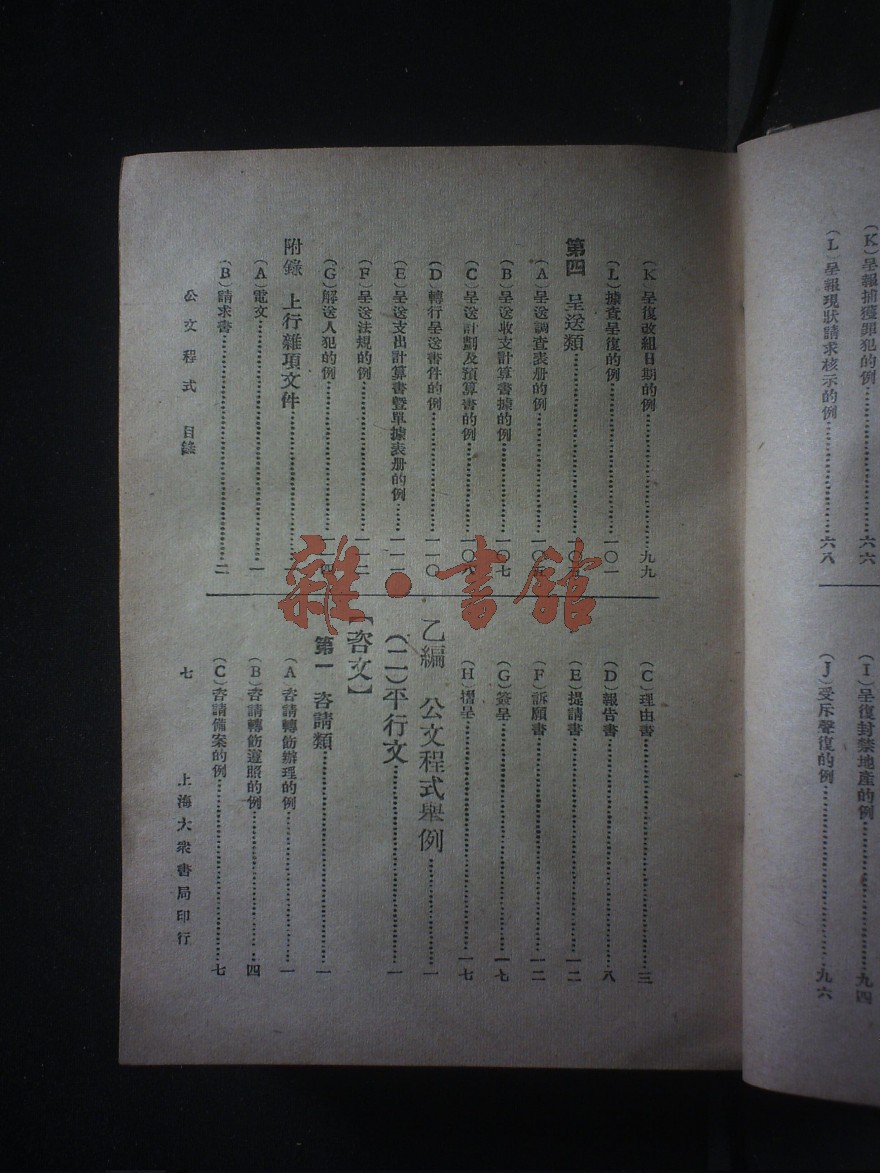 (K)呈報捕獲罪犯的例……六六
(L)呈報現狀請求核示的例……六八
(I)呈復封禁地產的例……九四
(J)受斥聲復的例……九六
(K)呈復改組日期的例……九九
(L)據查呈復的例……一〇一
第四 呈送類……一〇五
(A)呈送調查表册的例……一〇五
(B)呈送收支計算書據的例……一〇七
(C)呈送計劃及預算書的例……一〇八
(D)轉行呈送書件的例……一一〇
(E)呈送支出計算書暨單據表册的例……一一一
(F)呈送法規的例……一一二
(G)解送人犯的例……一一四
附錄 上行雜項文件……一
(A)電文……一
(B)請求書……二
(C)理由書……三
(D)報告書……八
(E)提請書……一二
(F)訴願書……一二
(G)簽呈……一七
(H)摺呈……一七
乙編 公文程式舉例……一
(二)平行文……一
【咨文】
第一 咨請類……一
(A)咨請轉飭辦理的例……一
(B)咨請轉飭遵照的例……四
(C)咨請備案的例……七
公文程式 目錄
七
上海大衆書局印行
雜·書館